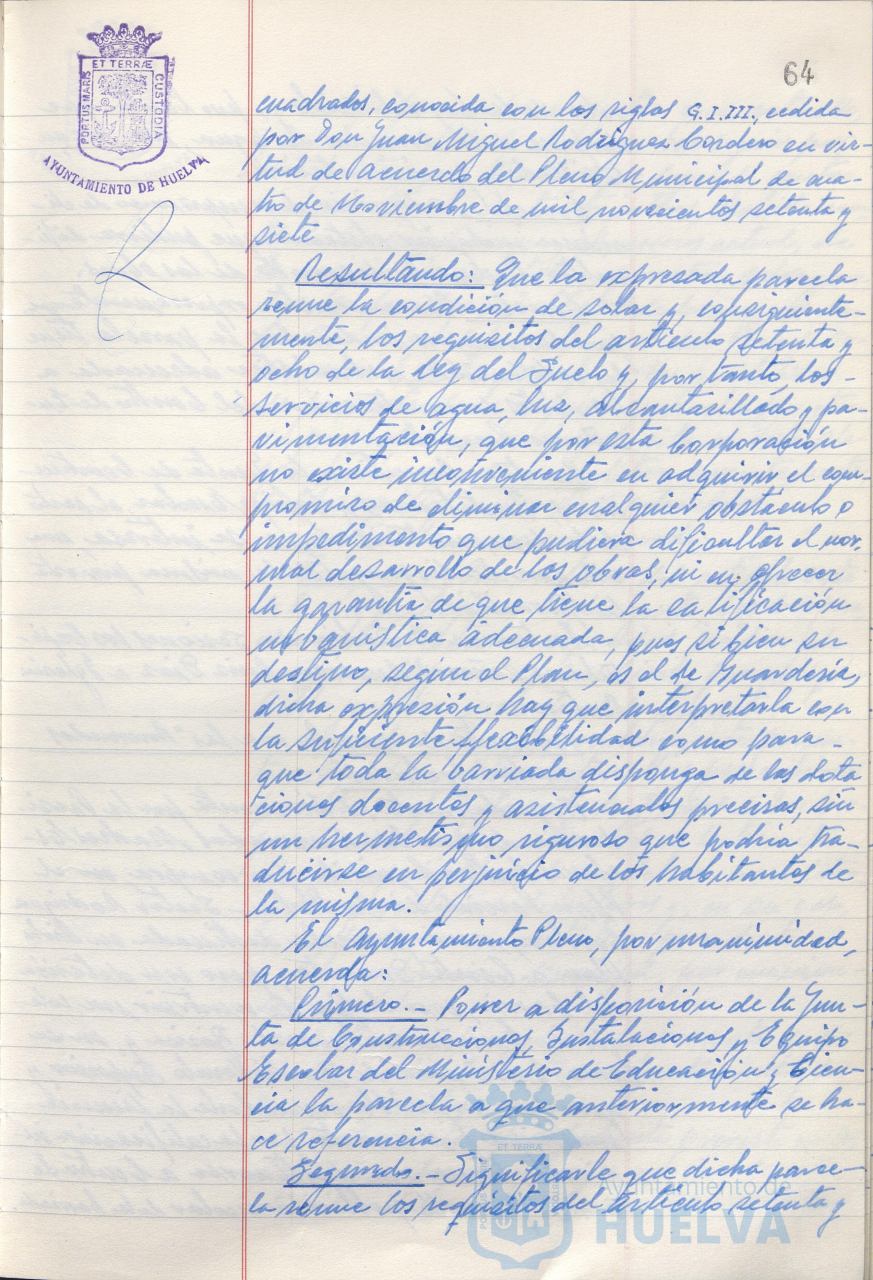 64
ET TERRÆ
PORTUS MARIS
CUSTODIA
AYUNTAMIENTO DE HUELVA
cuadrados, conocida con los siglas G.I.III., cedida
por Don Juan Miguel Rodríguez Cordero en vir-
tud de acuerdo del Pleno Municipal de cua-
tro de Noviembre de mil novecientos setenta y
siete
Resultando: Que la expresada parcela
reune la condición de solar y, consiguiente-
mente, los requisitos del artículo setenta y
ocho de la Ley del Suelo y, por tanto, los
servicios de agua, luz, alcantarillado y pa-
vimentación, que por esta Corporación
no existe inconveniente en adquirir el com-
promiso de eliminar cualquier obstaculo o
impedimento que pudiera dificultar el nor-
mal desarrollo de las obras, ni en ofrecer
la garantía de que tiene la calificación
urbanistica adecuada, pues si bien su
destino, según el Plan, es el de Guardería,
dicha expresión hay que interpretarla con
la suficiente flexibilidad como para
que toda la barriada disponga de las dota
ciones docentes y asistenciales precisas, sin
un hermetismo riguroso que podría tra-
ducirse en perjuicio de los habitantes de
la misma.
El Ayuntamiento Pleno, por unanimidad,
acuerda:
Primero.- Poner a disposición de la Jun-
ta de Construcciones, Instalaciones y Equipo
Escolar del Ministerio de Educación y Cien-
cia la parcela a que anteriormente se ha-
ce referencia.
Segundo.- Significarle que dicha parce-
la reune los requisitos del artículo setenta y
ET TERRÆ
Ayuntamiento de
HUELVA